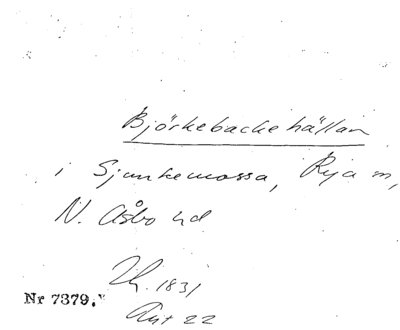 Björkebackehällan
i Sjunkemossa, Rya sn,
N. Åsbo hd
1831
Nr 7379.
22